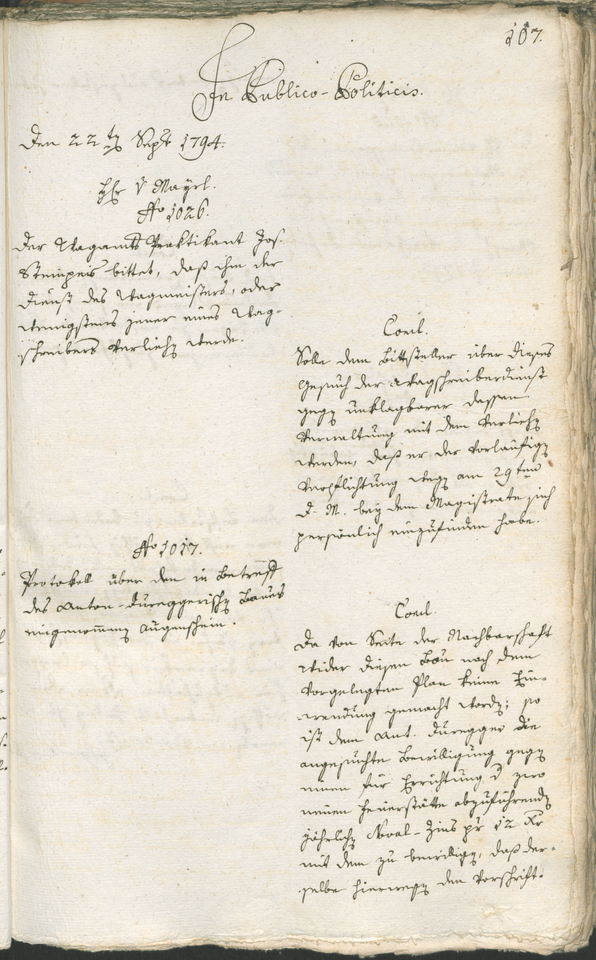 107.
In Publico-Politicis.
Den 22ten Sept 1794.
Hr v Mayrl.
No 1026.
Der Wagamts Praktikant Jos.
bittet, daß ihm der
Dienst des Wagmeisters, oder
wenigstens jener eines Wag-
schreibers verliehen werde.
Concl.
Solle dem Bittsteller über dieses
Gesuch der Wagschreiberdienst
gegen unklagbarer dessen
Verwaltung mit dem verliehen
werden, daß er der vorläufigen
Verpflichtung wegen am 29ten
d. M. bey dem Magistrate sich
persönlich einzufinden habe.
No 1017.
Protokoll über den in Betreff
des Anton-Dureggerischen Baues
eingenommenen Augenschein.
Concl.
Da von Seite der Nachbarschaft
wider diesen Bau nach dem
vorgelegten Plan keine Ein-
wendung gemacht worden; so
ist dem Ant. Duregger die
angesuchte Bewilligung gegen
einen für Errichtung d zwo
neuen Feuerstätte abzuführenden
jährlichen Zins pr 12 Kr
mit dem zu bewilligen, daß der-
selbe hierwegen den Vorschrift-